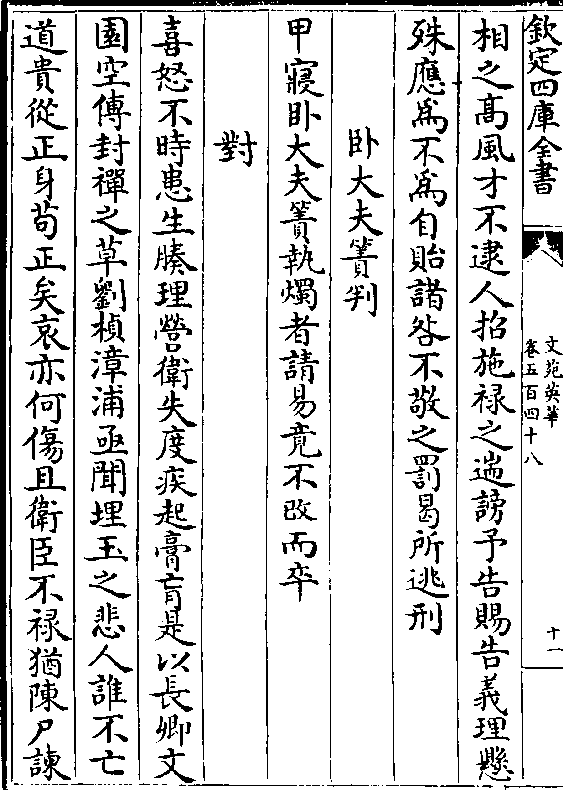 欽定四庫全書
文苑英華
卷五百四十八
十一
相之髙風才不逮人招施禄之遄謗予告賜告義理懸
殊應為不為自貽諸咎不敬之罰曷所逃刑
卧大夫簀判
甲寢卧大夫簀執燭者請易竟不改而卒
對
喜怒不時患生腠理營衛失度疾起膏肓是以長卿文
園空傳封禪之草劉楨漳浦亟聞埋玉之悲人誰不亡
道貴從正身茍正矣哀亦何傷且衛臣不禄猶陳尸諫